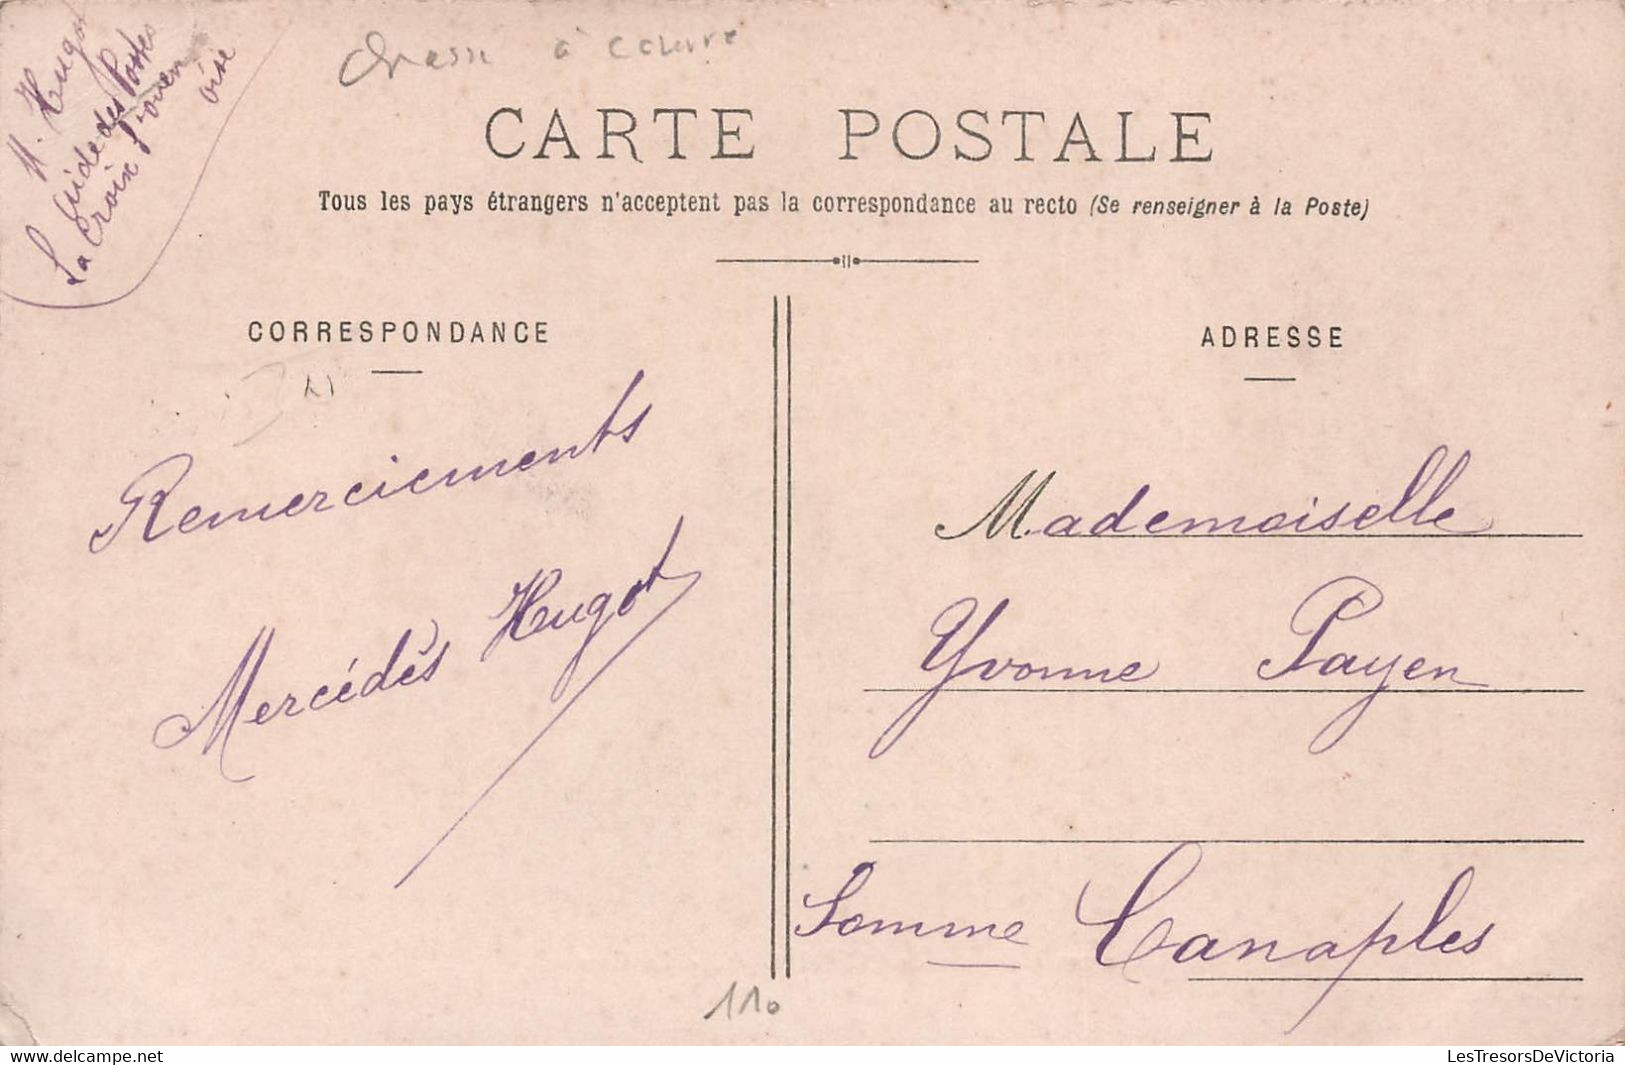 M. Hugot
des Postes
La Croix St Ouen
Oise
à courre
CARTE POSTALE
Tous les pays étrangers n'acceptent pas la correspondance au recto (Se renseigner à la Poste)
CORRESPONDANCE
Remerciements
Mercédès Hugot
ADRESSE
Mademoiselle
Yvonne Payen
Somme Canaples
110
delcampe.net
LesTresorsDeVictoria